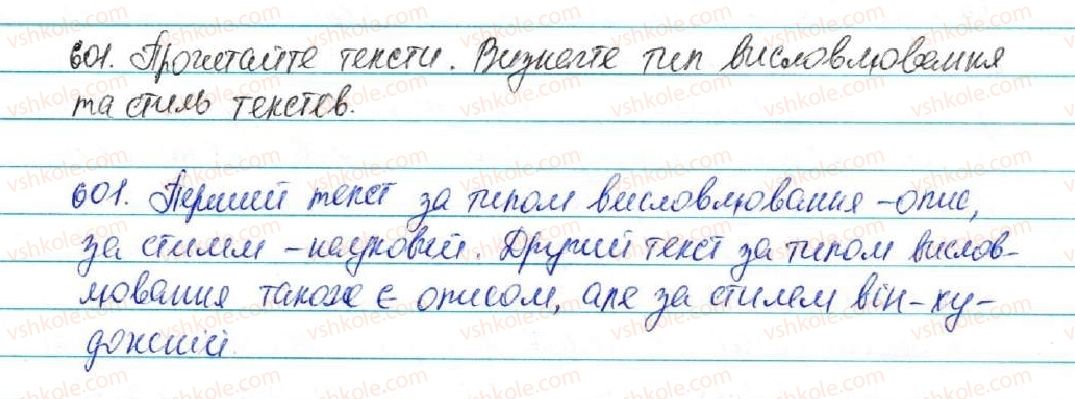 601. Прочитайте тексти. Визначте тип висловлювання
та стиль текстів.
601. Перший текст за типом висловлювання - опис,
за стилем - науковий. Другий текст за типом вислов-
лювання також є описом, але за стилем він - ху-
дожній.